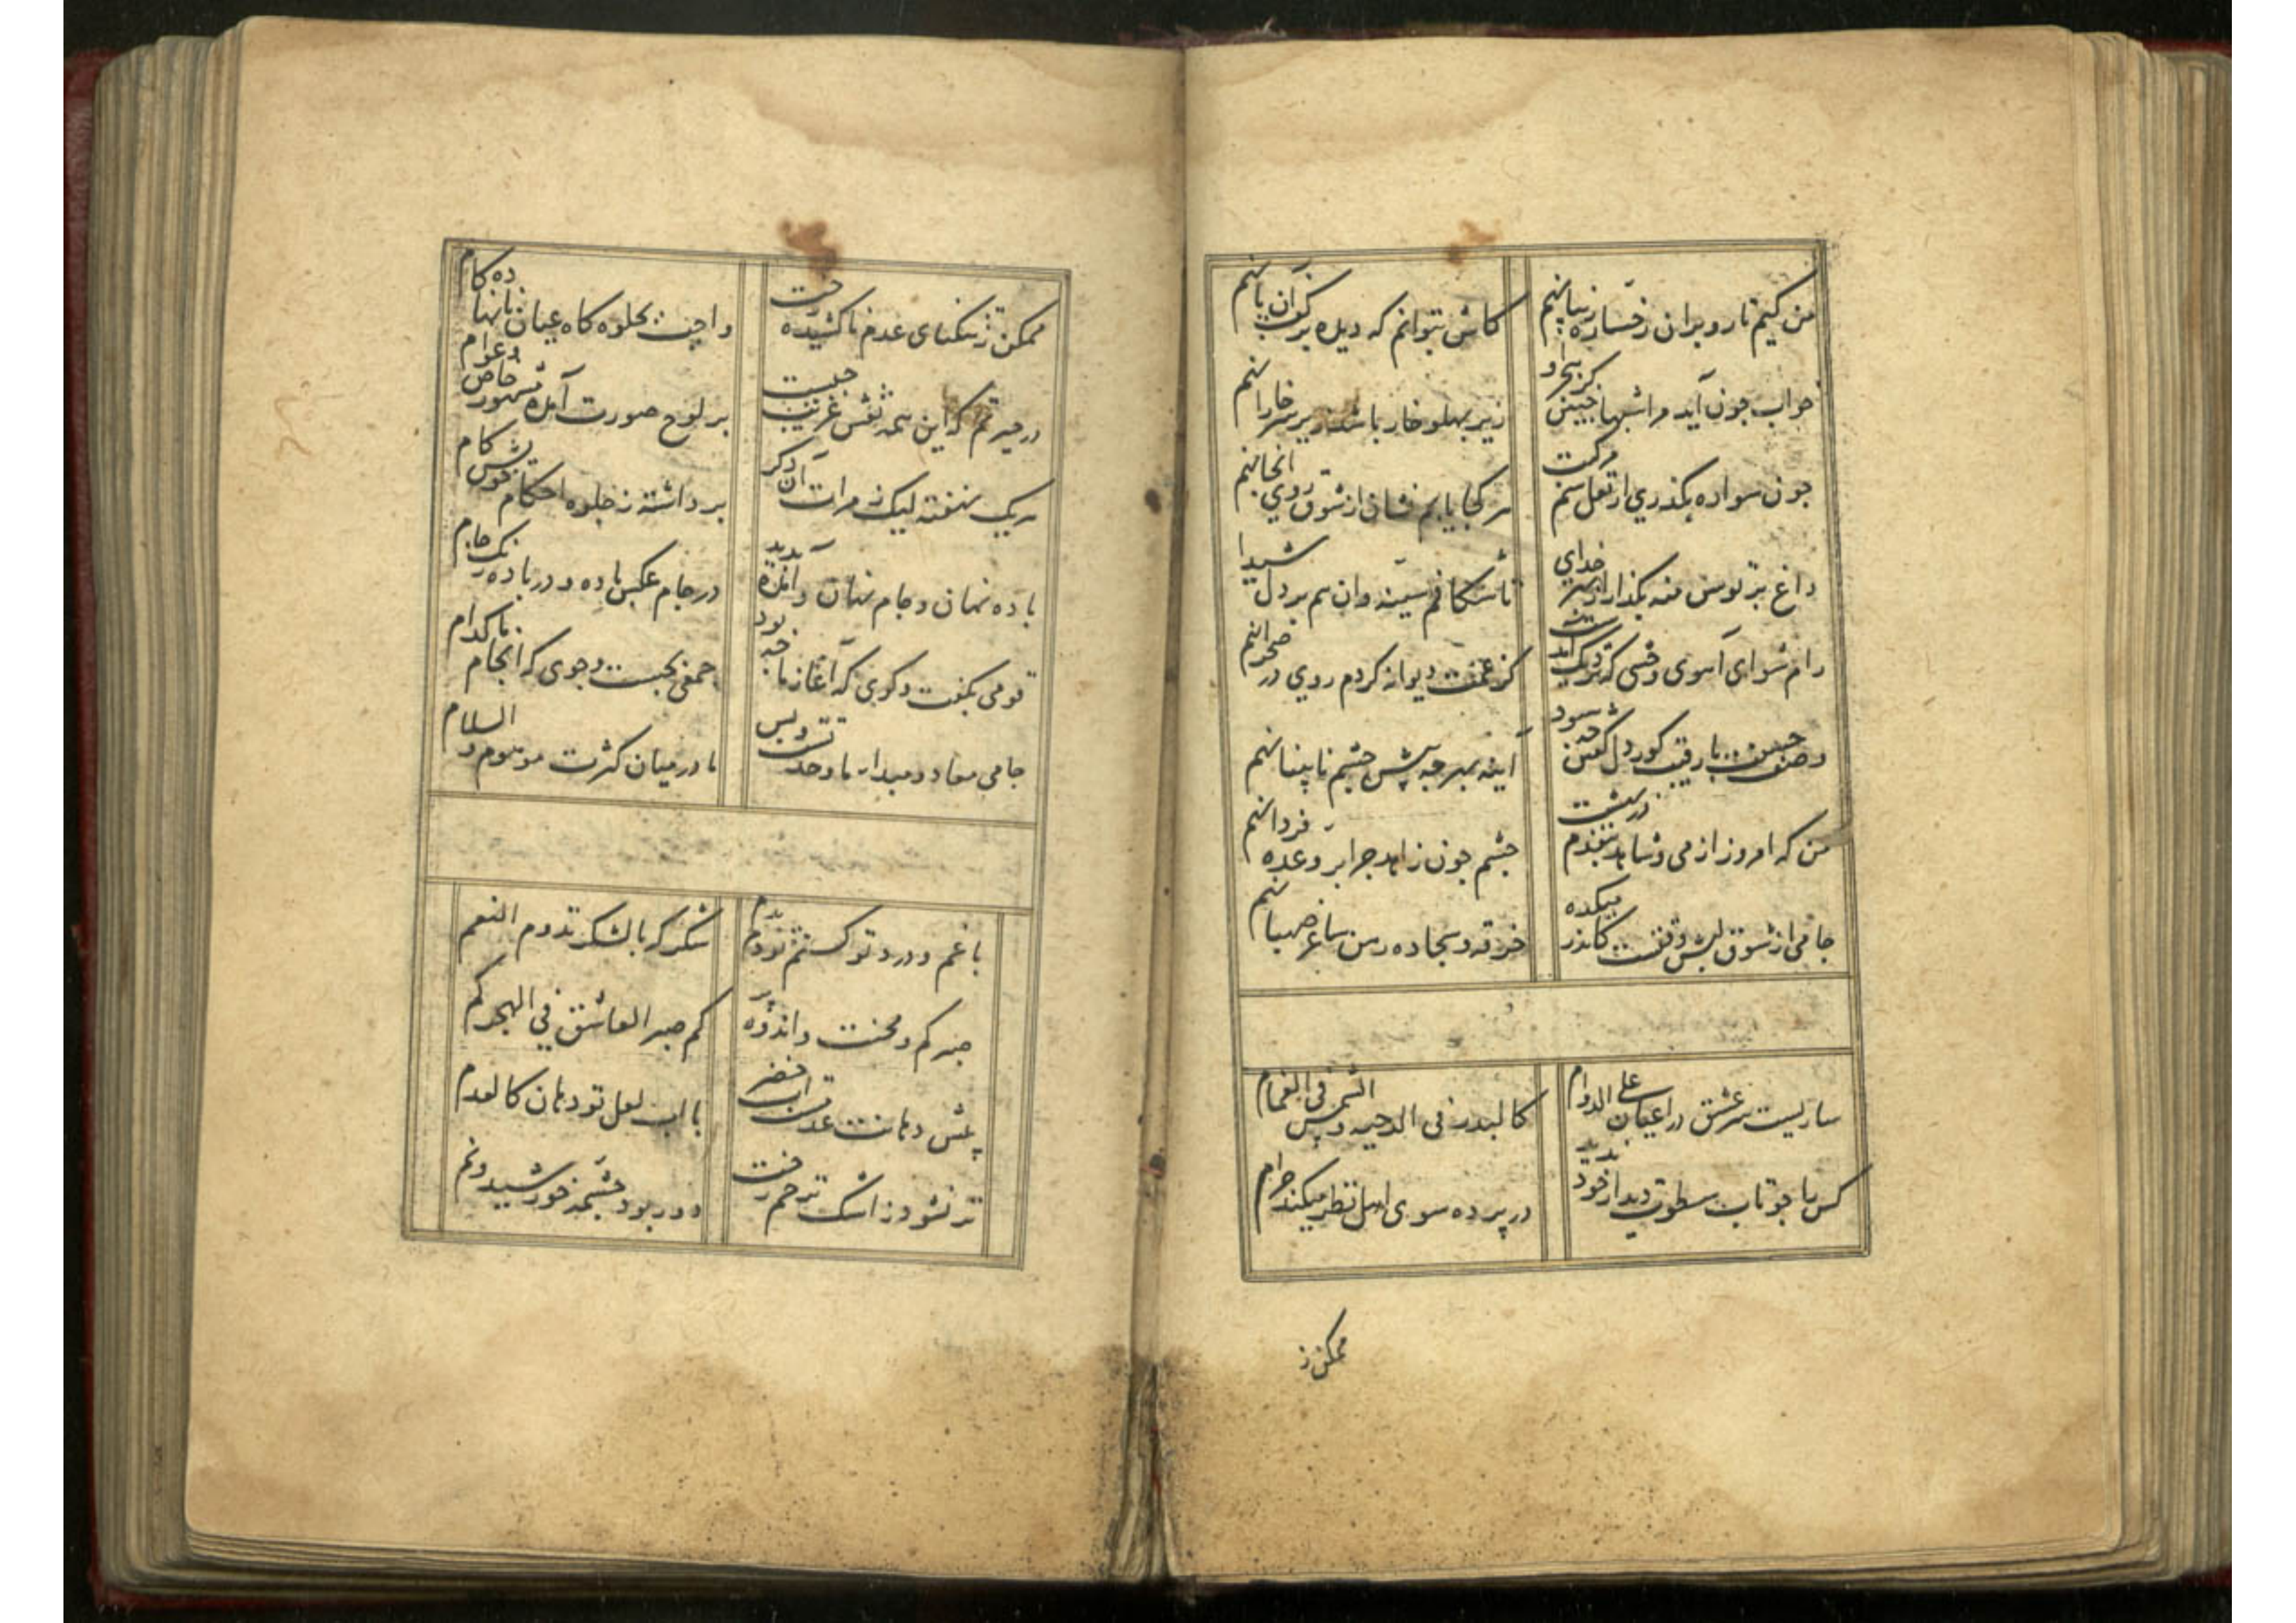 من کیم تا رو بران رخساره زیبا نهم
کاش بتوانم که دیده بر کف آن پا نهم
خواب چون آید مرا شبها چنین کز هجر او
زیر پهلو خار باشد زیر سر خارا نهم
چون سواره بگذری از نعل سم مرکبت
هر کجا یابم نشان از شوق روی آنجا نهم
داغ بر توسن منه بگذار از بهر خدای
تا شکافم سینه وان هم بر دل شیدا نهم
رام شو ای آهوی وحشی که نزدیک آمدست
کز غمت دیوانه کردم روی در صحرا نهم
وصف حسنت با رقیب کوردل گفتن چه سود
آینه بهر چه پیش چشم نابینا نهم
من که امروز از می و شاهد بنقدم در بهشت
چشم چون زاهد چرا بر وعده فردا نهم
جامی از شوق لبش وقتست کاندر میکده
خرقه و سجاده رهن ساغر صهبا نهم
ساریست سر عشق در اعیان علی الدوام
کالبدر فی الدجیه والشمس فی الغمام
کس را چو تاب سطوت دیدار خود ندید
در پرده سوی اهل نظر میکند خرام
ممکن ز
ممکن ز تنگنای عدم ناکشیده رخت
واجب بجلوه کاه عیان نانهاده کام
در حیرتم که این همه نقش غریب چیست
بر لوح صورت آمده مشهور خاص و عوام
هر یک نهفته لیک ز مرات آن دکر
برداشته ز جلوه احکام خویش کام
باده نهان و جام نهان و آمده پدید
در جام عکس باده و در باده رنک جام
قومی بکفت وکوی که آغاز ما چه بود
جمعی بجست وجوی که انجام ما کدام
جامی معاد و مبدا ما وحدتست و بس
ما در میان کثرت موهوم والسلام
با غم و درد تو کشم نودم بدم
شکر که بالشکر تدوم النعم
صبر کم و محنت و اندوه پر
کم صبر العاشق فی الهجر کم
پیش دهانت عدمست آب خضر
با لب لعل تو دهان کالعدم
تر نشود ز اشک ترحم رخت
دور بود چشمه خورشید و نم